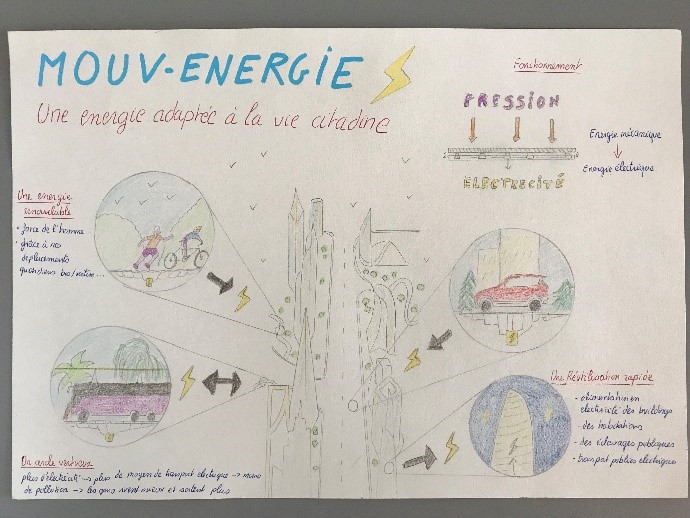 MOUV-ENERGIE
Une energie adaptée à la vie citadine
Fonctionnement
PRESSION
Energie mécanique
Energie électrique
ELECTRECITÉ
Une energie
renouvelable
• force de l'homme
• grâce à nos
deplacements
quotidiens bus/voiture...
Une Réutilisation rapide
- alimentation en
electricité des buildings
- des habitations
- des éclairages publiques
- transport publics electriques
Un cercle vertueux
plus d'électricité -> plus de moyen de transport electrique -> moins
de pollution -> les gens vivent mieux et sortent plus